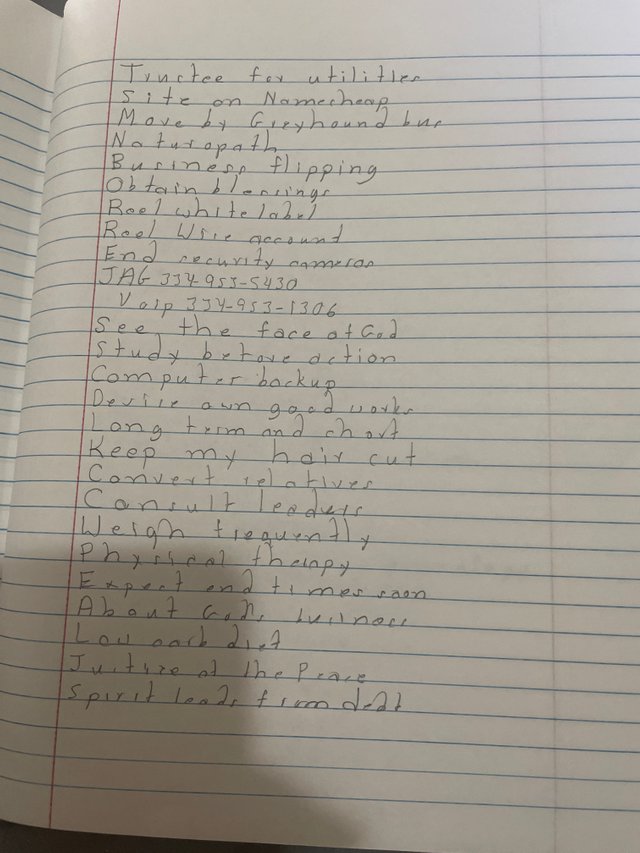 Trustee for utilities
Site on Namecheap
Move by Greyhound bus
Naturopath
Business flipping
Obtain blessings
Reel white label
Reel Wise account
End security cameras
JAG 334-953-5430
Voip 334-953-1306
See the face of God
Study before action
Computer backup
Devise own good works
Long term and short
Keep my hair cut
Convert relatives
Consult leaders
Weigh frequently
Physical therapy
Expect end times soon
About Gods business
Low carb diet
Justice of the Peace
Spirit leads from debt